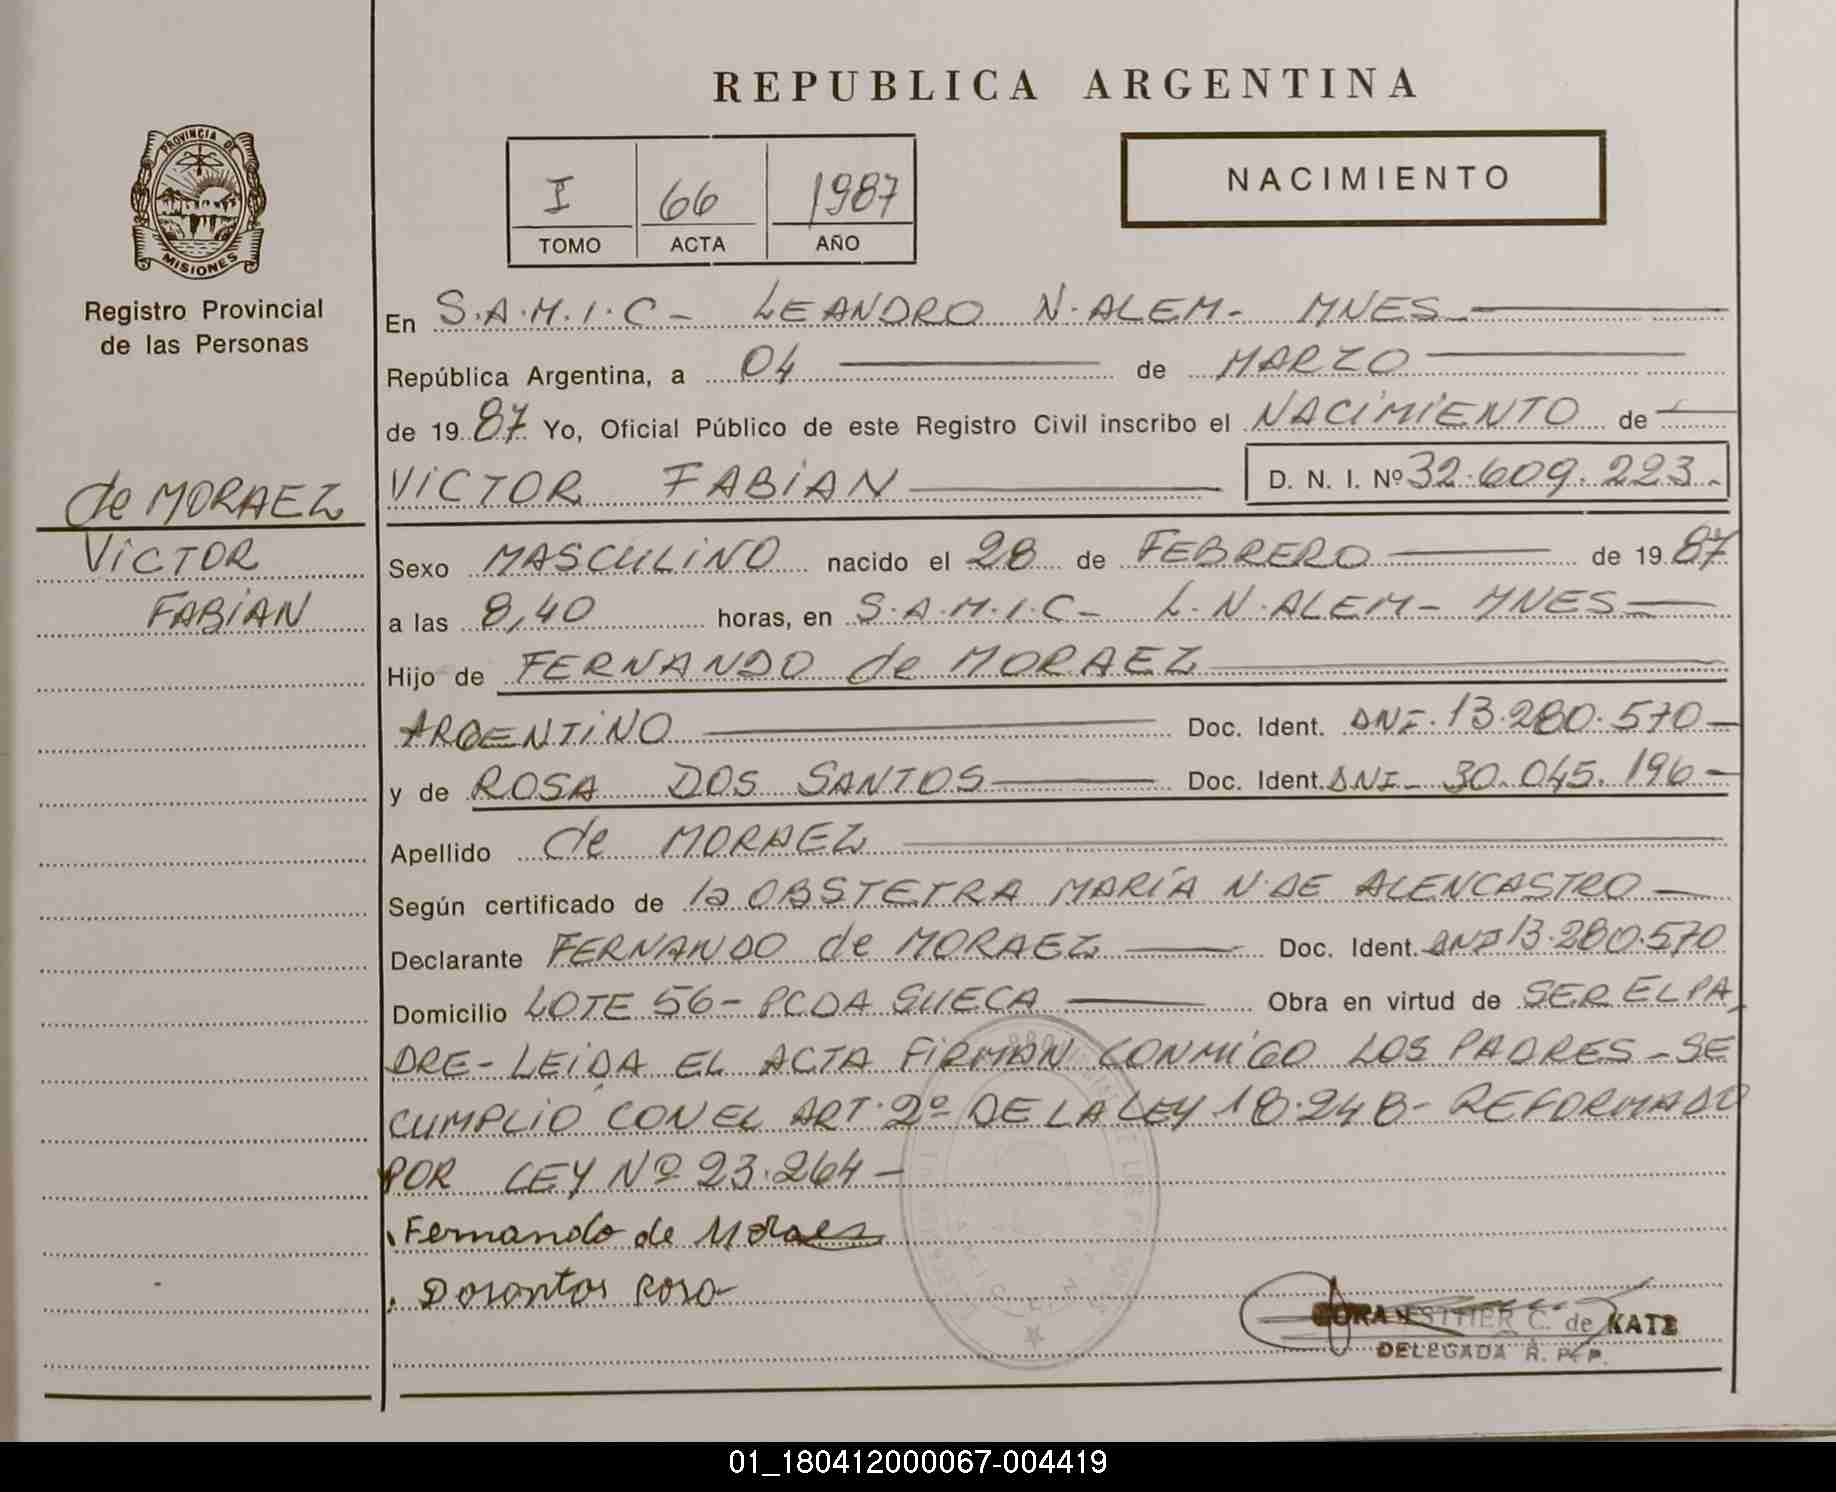 REPUBLICA ARGENTINA
PROVINCIA DE
MISIONES
Registro Provincial
de las Personas
I 66 1987
TOMO ACTA AÑO
NACIMIENTO
En S.A.M.I.C - LEANDRO N. ALEM - MNES
República Argentina, a 04 de MARZO
de 1987 Yo, Oficial Público de este Registro Civil inscribo el NACIMIENTO de
VICTOR FABIAN D. N. I. Nº 32.609.223.
de MORAEZ
VICTOR
FABIAN
Sexo MASCULINO nacido el 28 de FEBRERO de 1987
a las 8,40 horas, en S.A.M.I.C - L.N. ALEM - MNES
Hijo de FERNANDO de MORAEZ
ARGENTINO Doc. Ident. DNI. 13.280.570
y de ROSA DOS SANTOS Doc. Ident. DNI - 30.045.196
Apellido de MORAEZ
Según certificado de la OBSTETRA MARÍA N. DE ALENCASTRO
Declarante FERNANDO de MORAEZ Doc. Ident. DNI 13.280.570
Domicilio LOTE 56 - PCDA SUECA Obra en virtud de SER EL PA
DRE - LEIDA EL ACTA FIRMAN CONMIGO LOS PADRES - SE
CUMPLIO CON EL ART. 2º DE LA LEY 18.248 - REFORMADO
POR LEY Nº 23.264 -
Fernando de Moraes
Dosantos Rosa
ESTHER C. de KATZ
DELEGADA R. P. P.
01_180412000067-004419